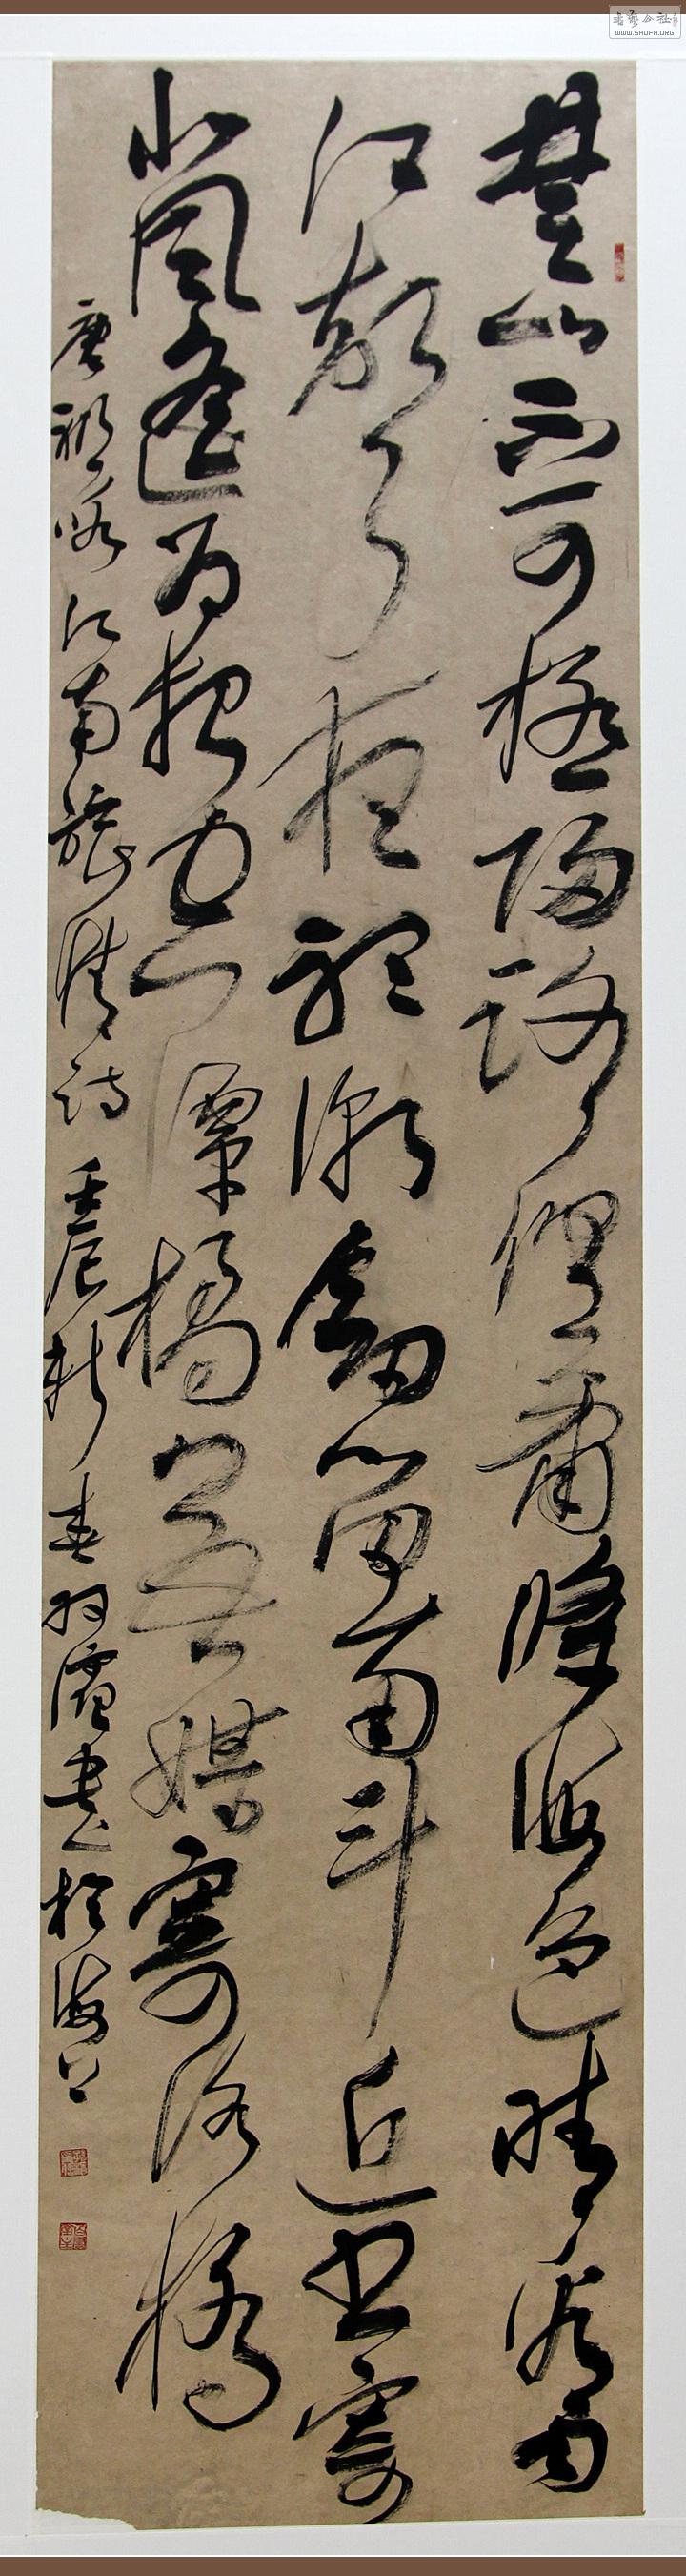 書藝公社
WWW.SHUFA.ORG
楚山不可極歸路但蕭條海色晴看雨
江聲夜聽潮劍留南斗近書寄
北風遙為報空潭橘無媒寄洛橋
唐祖咏江南旅情詩壬辰新春書於海上